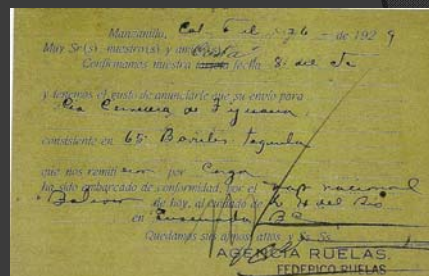 Manzanillo, Col. 5 de de 1929
Muy Sr(s) nuestro(s) y amigo(s)
Carta
Confirmamos nuestra tarjeta fecha 8. del
y tenemos el gusto de anunciarle que su envío para
Cia Cervecera de Tijuana
consistente en 65 Barriles Tequila
que nos remitieron por Carga
ha sido embarcado de conformidad, por el vap nacional
Bolivar de hoy, al cuidado de del Rio
en Ensenada, BC
Quedamos sus afmos. attos. y Ss. Ss.
AGENCIA RUELAS.
FEDERICO RUELAS